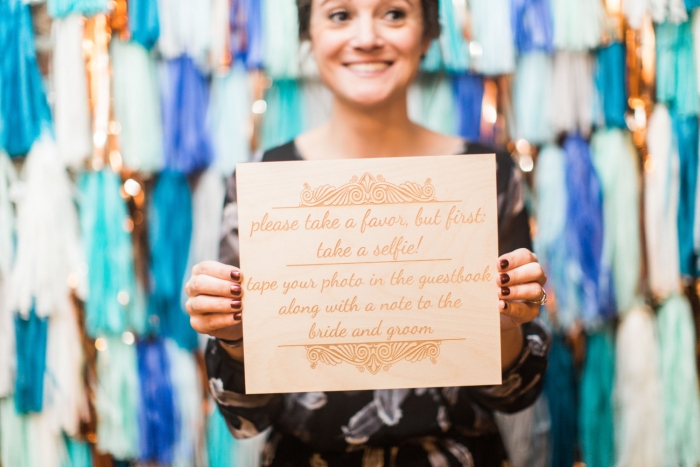 please take a favor, but first:
take a selfie!
tape your photo in the guestbook
along with a note to the
bride and groom